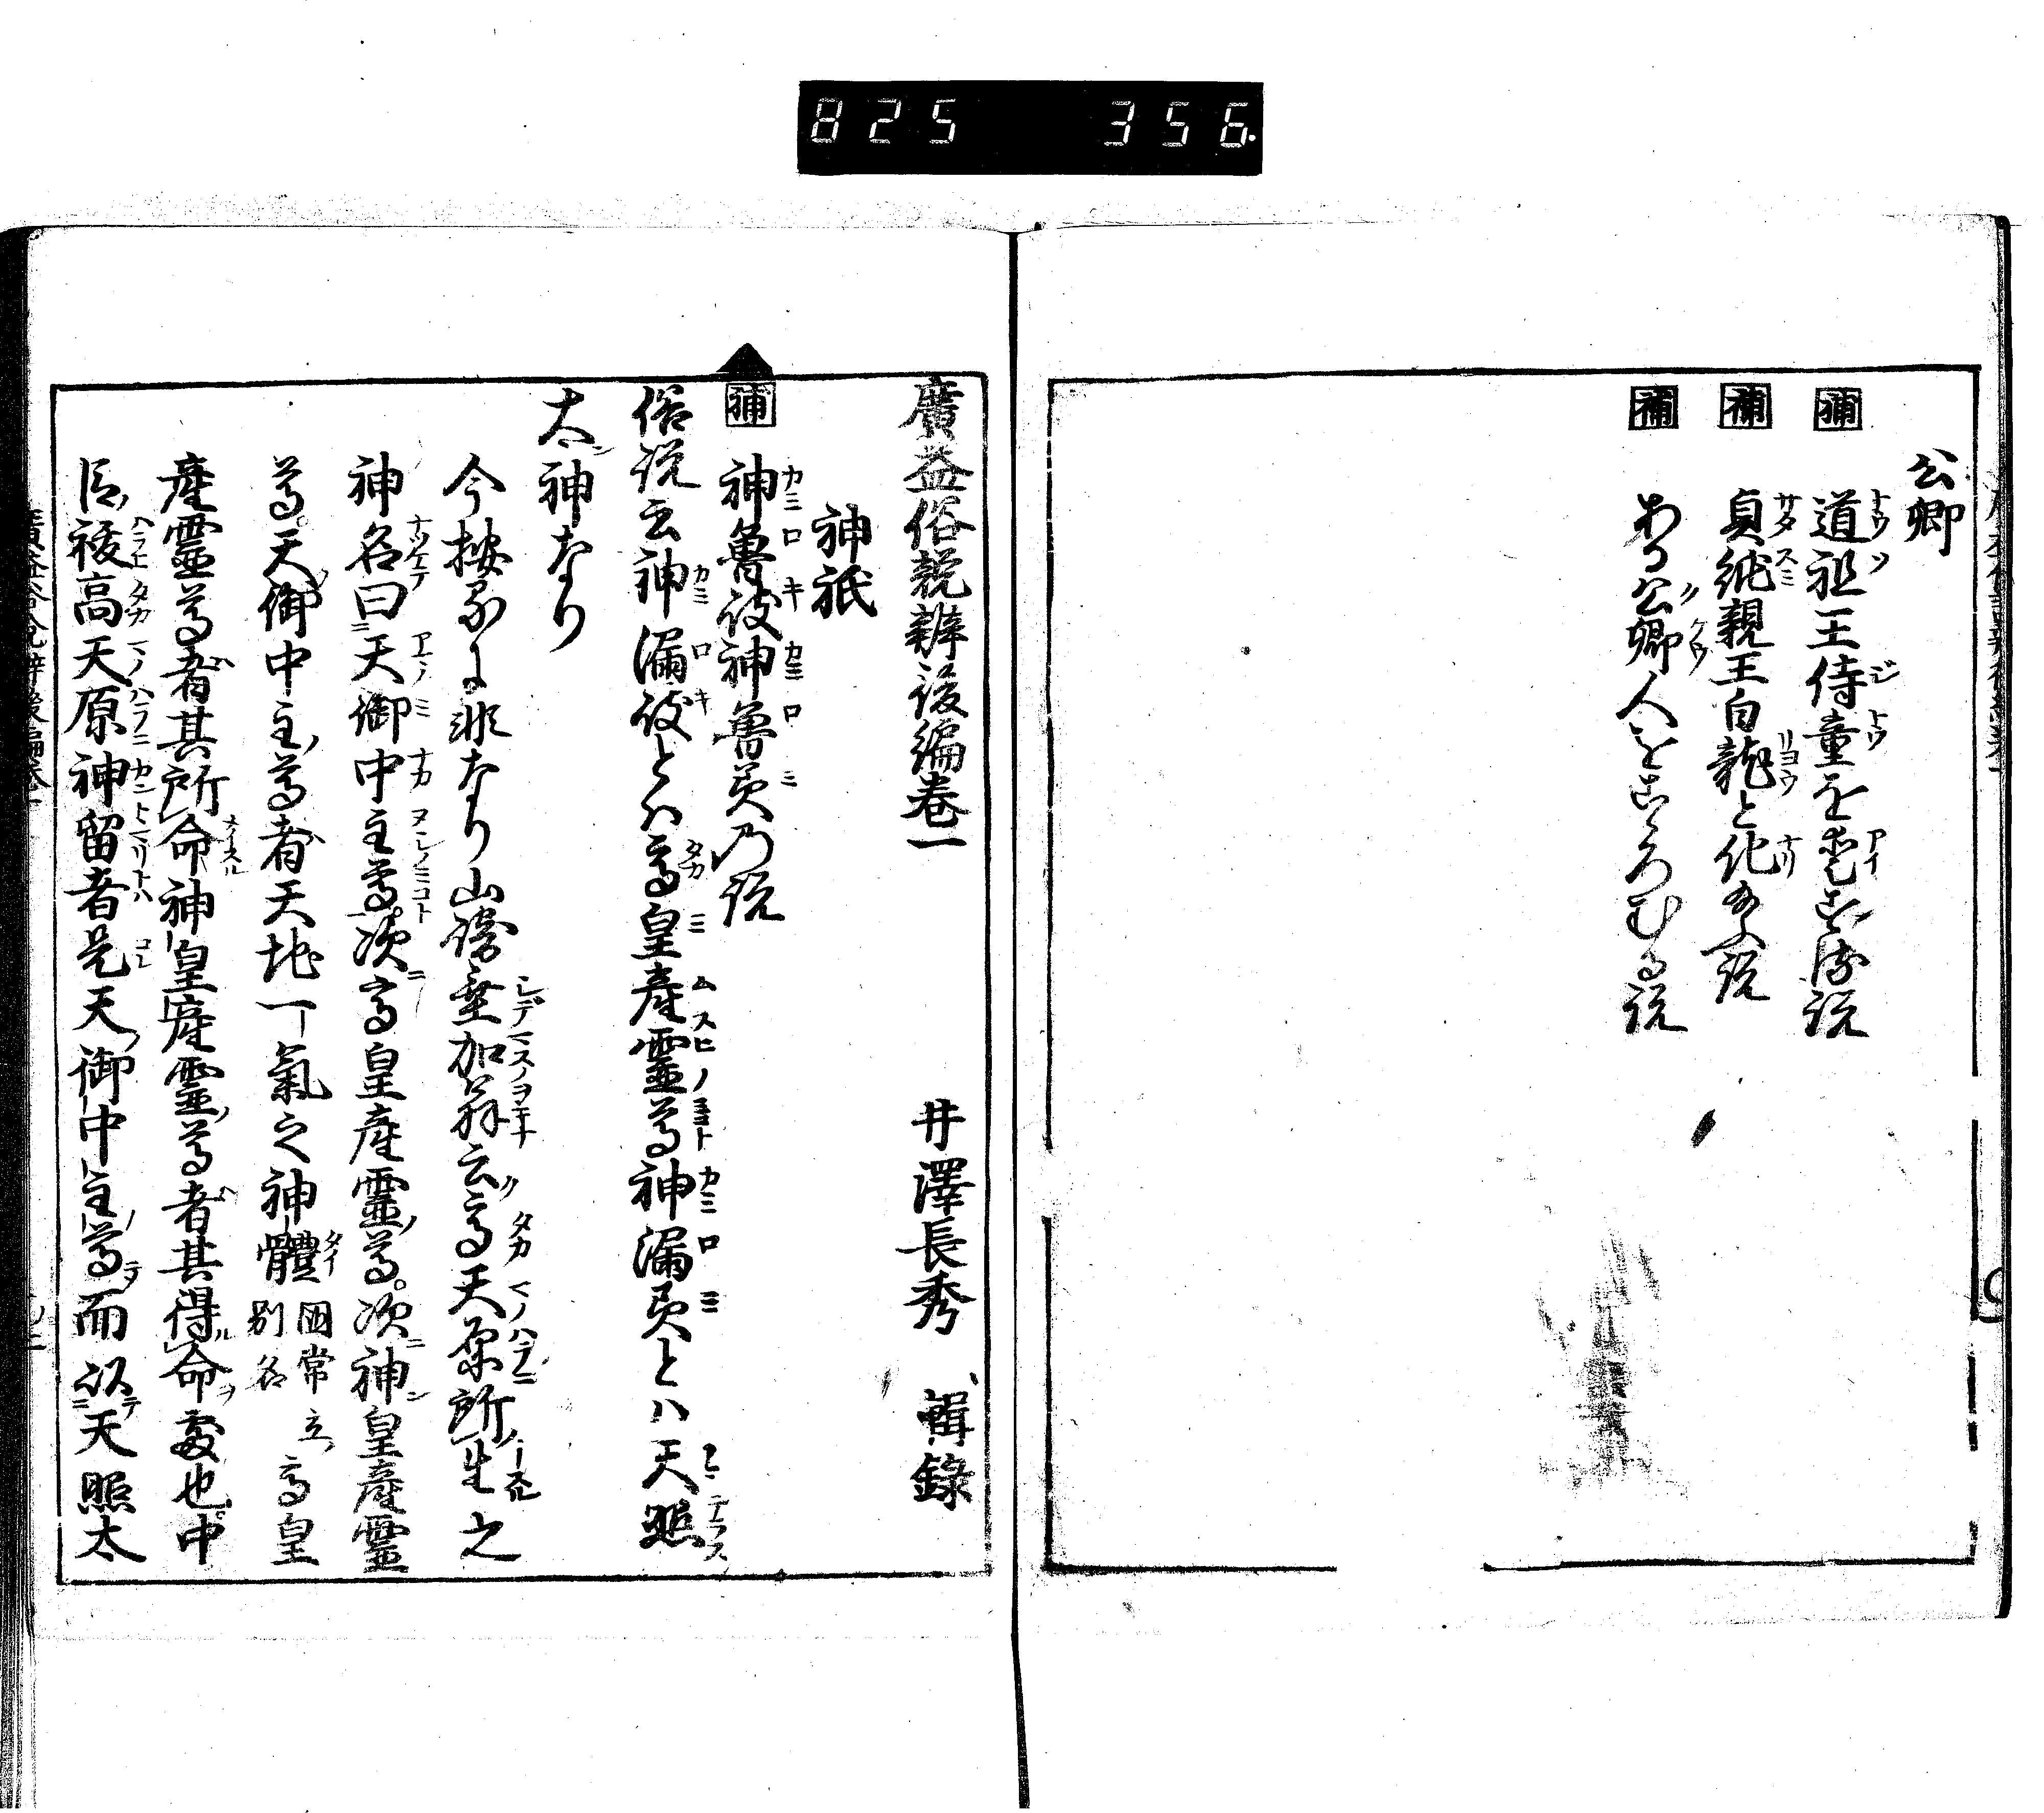 825 356
公卿
補 道祖王侍童を愛する説
補 貞純親王白龍と化給ふ説
補 ある公卿人をこゝろむる説
廣益俗説辨後編卷一
井澤長秀 輯録
神祇
補 神魯伎神魯美乃説
俗説云神漏伎とハ高皇産靈尊神漏美とハ天照
太神なり
今按るに非なり山崎垂加翁云高天原所生之
神名曰天御中主尊次高皇産靈尊次神皇産靈
尊天御中主尊者天地一氣之神體國常立別名高皇
産靈尊者其所命神皇産靈尊者其得命處也中
臣祓高天原神留者是天御中主尊而以天照太